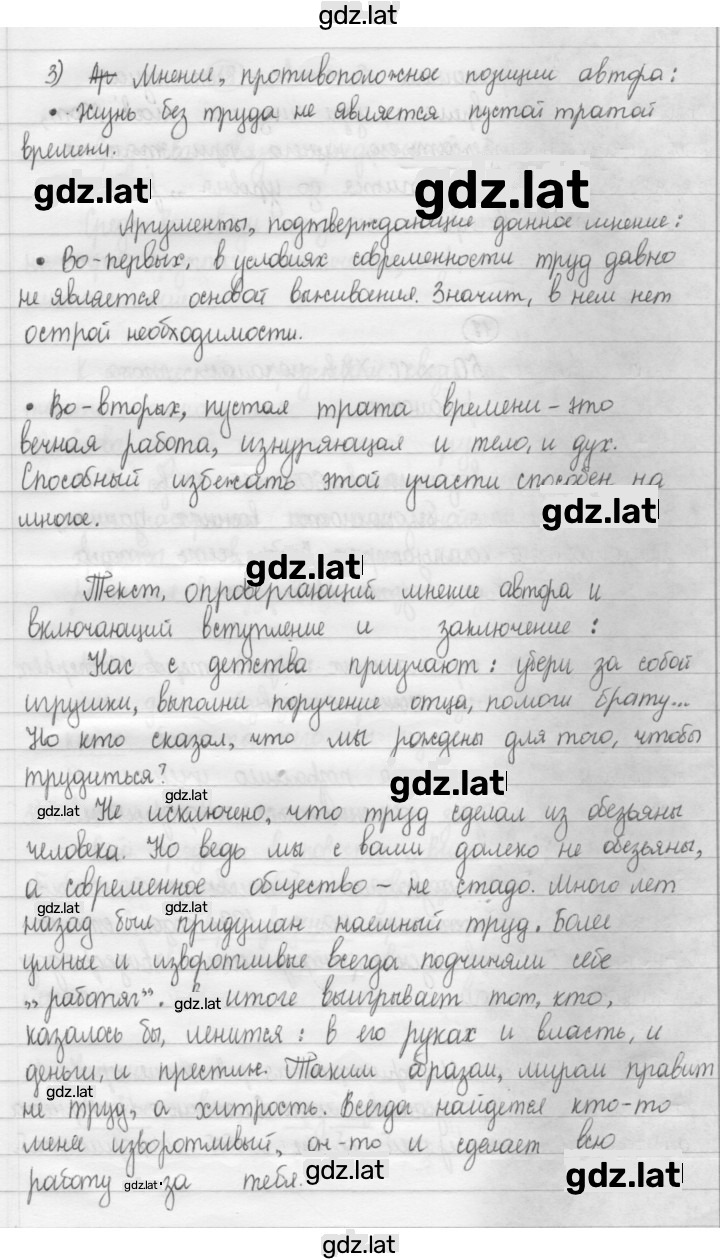 gdz.lat
3) Ар Мнение, противоположное позиции автора:
• Жизнь без труда не является пустой тратой
времени.
gdz.lat gdz.lat
Аргументы, подтверждающие данное мнение:
• Во-первых, в условиях современности труд давно
не является основой выживания. Значит, в нем нет
острой необходимости.
• Во-вторых, пустая трата времени – это
вечная работа, изнуряющая и тело, и дух.
Способный избежать этой участи способен на
многое.
gdz.lat
gdz.lat
Текст, опровергающий мнение автора и
включающий вступление и заключение:
Нас с детства приучают: убери за собой
игрушки, выполни поручение отца, помоги брату...
Но кто сказал, что мы рождены для того, чтобы
трудиться?
gdz.lat
gdz.lat gdz.lat
Не исключено, что труд сделал из обезьяны
человека. Но ведь мы с вами далеко не обезьяны,
а современное общество – не стадо. Много лет
gdz.lat gdz.lat
назад был придуман наемный труд. Более
умные и изворотливые всегда подчиняли себе
„работяг". В итоге выигрывает тот, кто,
gdz.lat
казалось бы, ленится: в его руках и власть, и
деньги, и престиж. Таким образом, миром правит
gdz.lat
не труд, а хитрость. Всегда найдется кто-то
менее изворотливый, он-то и сделает всю
работу за тебя.
gdz.lat gdz.lat gdz.lat
gdz.lat